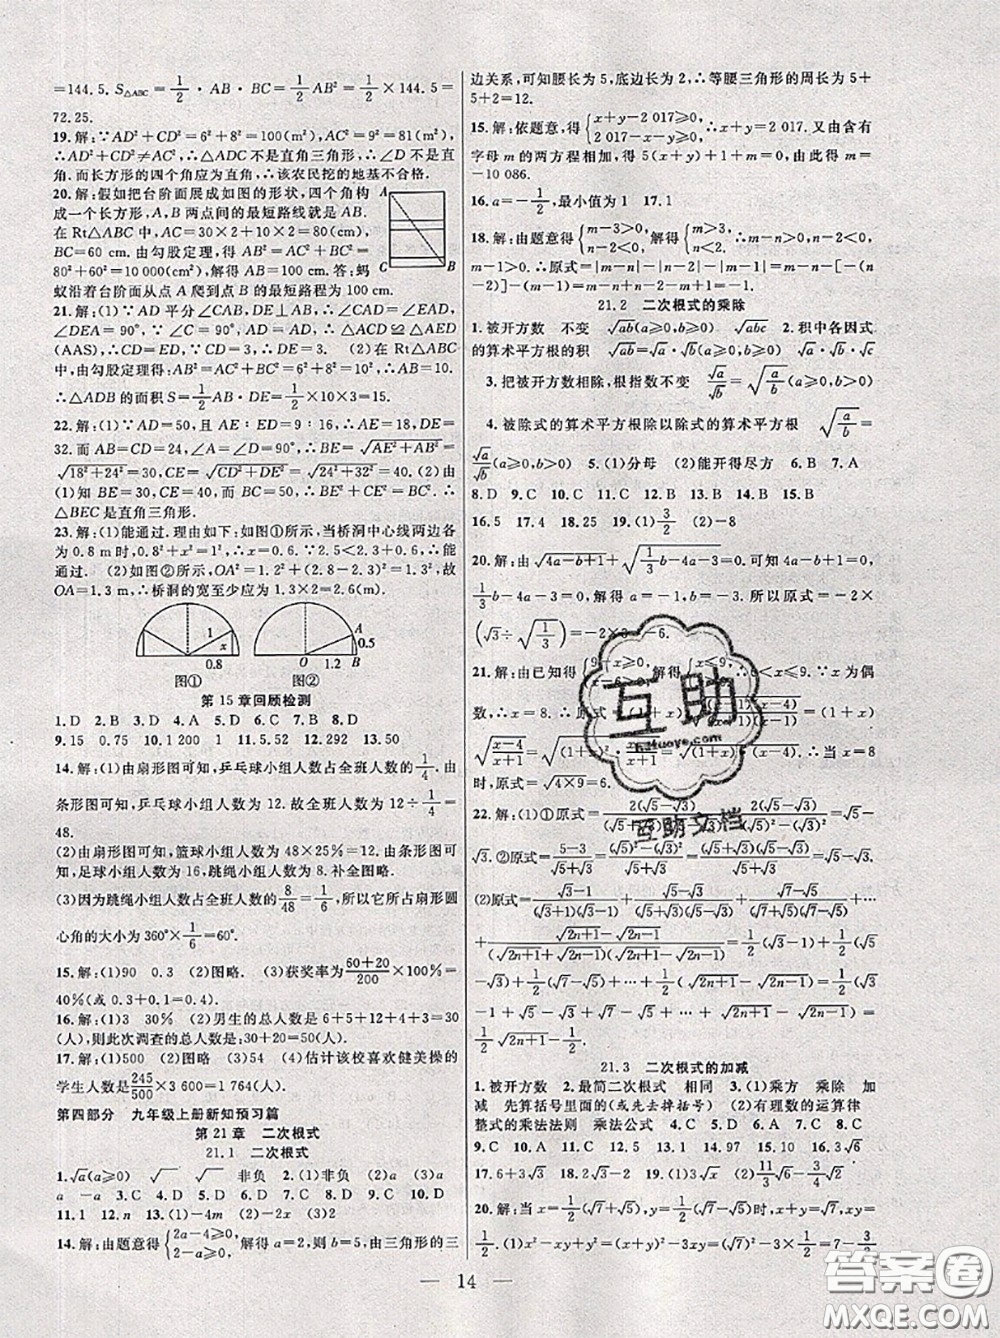 =144.5. S△ABC=1/2·AB·BC=1/2×144.5=
72.25.
19.解:∵AD²+CD²=6²+8²=100(m²),AC²=9²=81(m²),
∴AD²+CD²≠AC²,∴△ADC不是直角三角形,∴∠D不是直
角.而长方形的四个角应为直角,∴该农民挖的地基不合格.
20.解:假如把台阶面展成如图的形状,四个角构
成一个长方形,A,B两点间的最短路线就是AB.
在Rt△ABC中,AC=30×2+10×2=80(cm),
BC=60 cm.由勾股定理,得AB²=AC²+BC²=
80²+60²=10 000(cm²),解得AB=100 cm.答:蚂
蚁沿着台阶面从点A爬到点B的最短路程为100 cm.
A
C B
21.解:(1)∵AD平分∠CAB,DE⊥AB,∴∠CAD=∠EAD,
∠DEA=90°,∵∠C=90°,AD=AD,∴△DAC≌△DAE
(AAS),∴CD=DE=3,∴DE=3. (2)在Rt△ABC中,
由勾股定理得:AB²=AC²+BC²=6²+8²=10²,∴AB=10.
∴△ADB的面积S=1/2AB·DE=1/2×10×3=15.
22.解:(1)∵AD=50,且AE∶ED=9∶16,∴AE=18,DE=
32.而AB=CD=24,∠A=∠D=90°,∴BE=√(AE²+AB²)=
√(18²+24²)=30,CE=√(CD²+DE²)=√(24²+32²)=40. (2)由
(1)知BE=30,CE=40.又BC=50,∴BE²+CE²=BC².∴
△BEC是直角三角形.
23.解:(1)能通过.理由如下:如图①所示,当桥洞中心线两边各
为0.8 m时,由勾股定理得x²+0.8²=1²,∴x=0.6,∵
通过. (2)如图②所示,OA²=1.2²+(2.8-2.3)²=1.3²,故
OA=1.3 m,∴桥洞的宽至少应为1.3×2=2.6(m).
1 x 0.8
A 0.5 O 1.2 B
图① 图②
第15章回顾检测
1.D 2.B 3.D 4.A 5.D 6.D 7.B 8.D
9.15 0.75 10.1 200 1 11.5.52 12.292 13.50
14.解:(1)由扇形图可知,乒乓球小组人数占全班人数的1/4.由
条形图可知,乒乓球小组人数为12.故全班人数为12÷1/4=
48.
(2)由扇形图可知,篮球小组人数为48×25%=12.由条形图可知,
足球小组人数为16,跳绳小组人数为8.补全图略.
(3)因为跳绳小组人数占全班人数的8/48=1/6,所以它所占扇形圆
心角的大小为360°×1/6=60°.
15.解:(1)90 0.3 (2)图略. (3)获奖率为(60+20)/200×100%=
40%(或0.3+0.1=0.4).
16.解:(1)3 30% (2)男生的总人数是6+5+12+4+3=30
(人),则此次调查的总人数是:30+20=50(人).
17.解:(1)500 (2)图略 (3)54 (4)估计该校喜欢健美操的
学生人数是245/500×3 600=1 764(人).
第四部分 九年级上册新知预习篇
第21章 二次根式
21.1 二次根式
1.√a(a≥0) √ √ 非负 2.(1)非负 (2)a (3)a
a -a 3.C 4.D 5.D 6.D 7.C 8.D 9.D 10.D
11.1 12.n 13.(1)-4m (2)-2x (3)2
14.解:由题意得{2a-4≥0,2-a≥0,解得a=2,则b=5,由三角形的三
边关系,可知腰长为5,底边长为2,∴等腰三角形的周长为5+
5+2=12.
15.解:依题意,得{x+y-2 017≥0,2 017-x-y≥0,∴x+y=2 017.又由含有
字母m的两方程相加,得5(x+y)+1+m=0,由此得m=
-10 086.
16.a=-1/2,最小值为1 17.1
18.解:由题意得{m-3>0,n-2<0,解得{m>3,n<2,∴m-n>0,n-2<0,
m-1>0,∴原式=|m-n|-|n-2|-|m-1|=m-n-[-(n
-2)]-(m-1)=m-n+n-2-m+1=-1.
21.2 二次根式的乘除
1.被开方数 不变 √ab(a≥0,b≥0) √abc 2.积中各因式
的算术平方根的积 √ab=√a·√b(a≥0,b≥0) √a·√b·√c
3.把被开方数相除,根指数不变 √a/√b=√(a/b)(a≥0,b>0)
4.被除式的算术平方根除以除式的算术平方根 √(a/b)=
√a/√b(a≥0,b>0) 5.(1)分母 (2)能开得尽方 6.B 7.A
8.D 9.C 10.D 11.C 12.A 13.C 14.B 15.B
16.5 17.4 18.25 19.(1)3/2 (2)-8
20.解:由√(4a-b+1)+√(1/3b-4a-3)=0.可知4a-b+1=0,
1/3b-4a-3=0,解得a=-1,b=-3.所以原式=-2×
(√3÷√(1/3))=-2×3=-6.
21.解:由已知得{9-x≥0,x-6>0,解得{x≤9,x>6,∴6<x≤9.∵x为偶
数,∴x=8.
√((x-4)/(x+1))
∴当x=8
时,原式=√(4×9)=6.
22.解:(1)①原式=2(√5-√3)/
②原式=(5-3)/
(2)原式=(√3-1)/((√3+1)(√3-1))+(√5-√3)/((√5+√3)(√5-√3))+(√7-√5)/((√7+√5)(√7-√5))+…
+(√(2n+1)-√(2n-1))/((√(2n+1)+√(2n-1))(√(2n+1)-√(2n-1)))=1/2(√3-1)+1/2(√5
-√3)+1/2(√7-√5)+…+1/2(√(2n+1)-√(2n-1))=1/2(√3
-1+√5-√3+√7-√5+…+√(2n+1)-√(2n-1))=
1/2√(2n+1)-1/2.
21.3 二次根式的加减
1.被开方数 2.最简二次根式 相同 3.(1)乘方 乘除 加
减 先算括号里面的(或先去掉括号) (2)有理数的运算律
整式的乘法法则 乘法公式 4.C 5.C 6.D 7.D 8.C
9.C 10.A 11.A 12.D 13.D 14.C 15.1 16.3√6
17.6+3√3 18.2√3-2 19.(1)√2+2√3 (2)11/3√3-3/4√6
20.解:当x=1/2(√7+√5),y=1/2(√7-√5)时,x+y=√7,xy=
1/2.(1)x²-xy+y²=(x+y)²-3xy=(√7)²-3×1/2=7-3/2=
— 14 —
互助
互助文档
答案圈
MXQE.COM